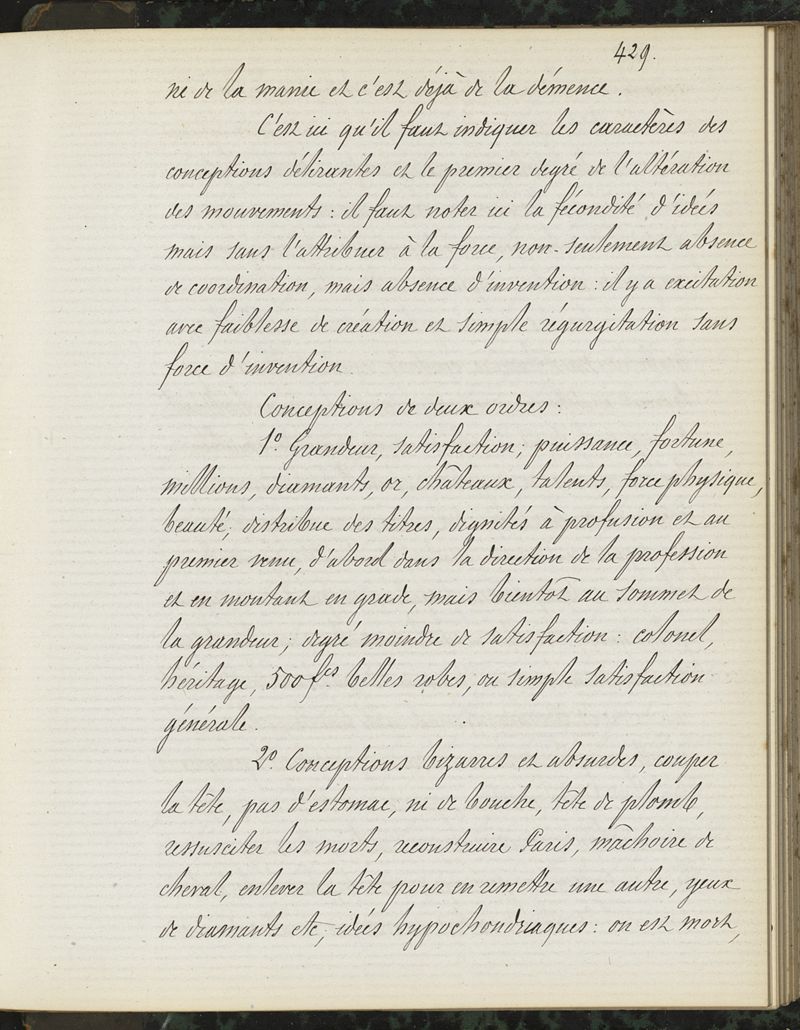 429.
ni de la manie et c'est déjà de la démence.
C'est ici qu'il faut indiquer les caractères des
conceptions délirantes et le premier degré de l'altération
des mouvements : il faut noter ici la fécondité d'idées
mais sans l'attribuer à la force, non-seulement absence
de coordination, mais absence d'invention : il y a excitation
avec faiblesse de création et simple régurgitation sans
force d'invention.
Conceptions de deux ordres :
1º. Grandeur, satisfaction; puissance, fortune,
millions, diamants, or, châteaux, talents, force physique,
beauté; distribue des titres, dignités à profusion et au
premier venu, d'abord dans la direction de la profession
et en montant en grade, mais bientôt au sommet de
la grandeur; degré moindre de satisfaction : colonel,
héritage, 500 fcs. belles robes, ou simple satisfaction
générale.
2º. Conceptions bizarres et absurdes, couper
la tête, pas d'estomac, ni de bouche, tête de plomb,
ressusciter les morts, reconstruire Paris, mâchoire de
cheval, enlever la tête pour en remettre une autre, yeux
de diamants etc; idées hypochondriaques : on est mort,